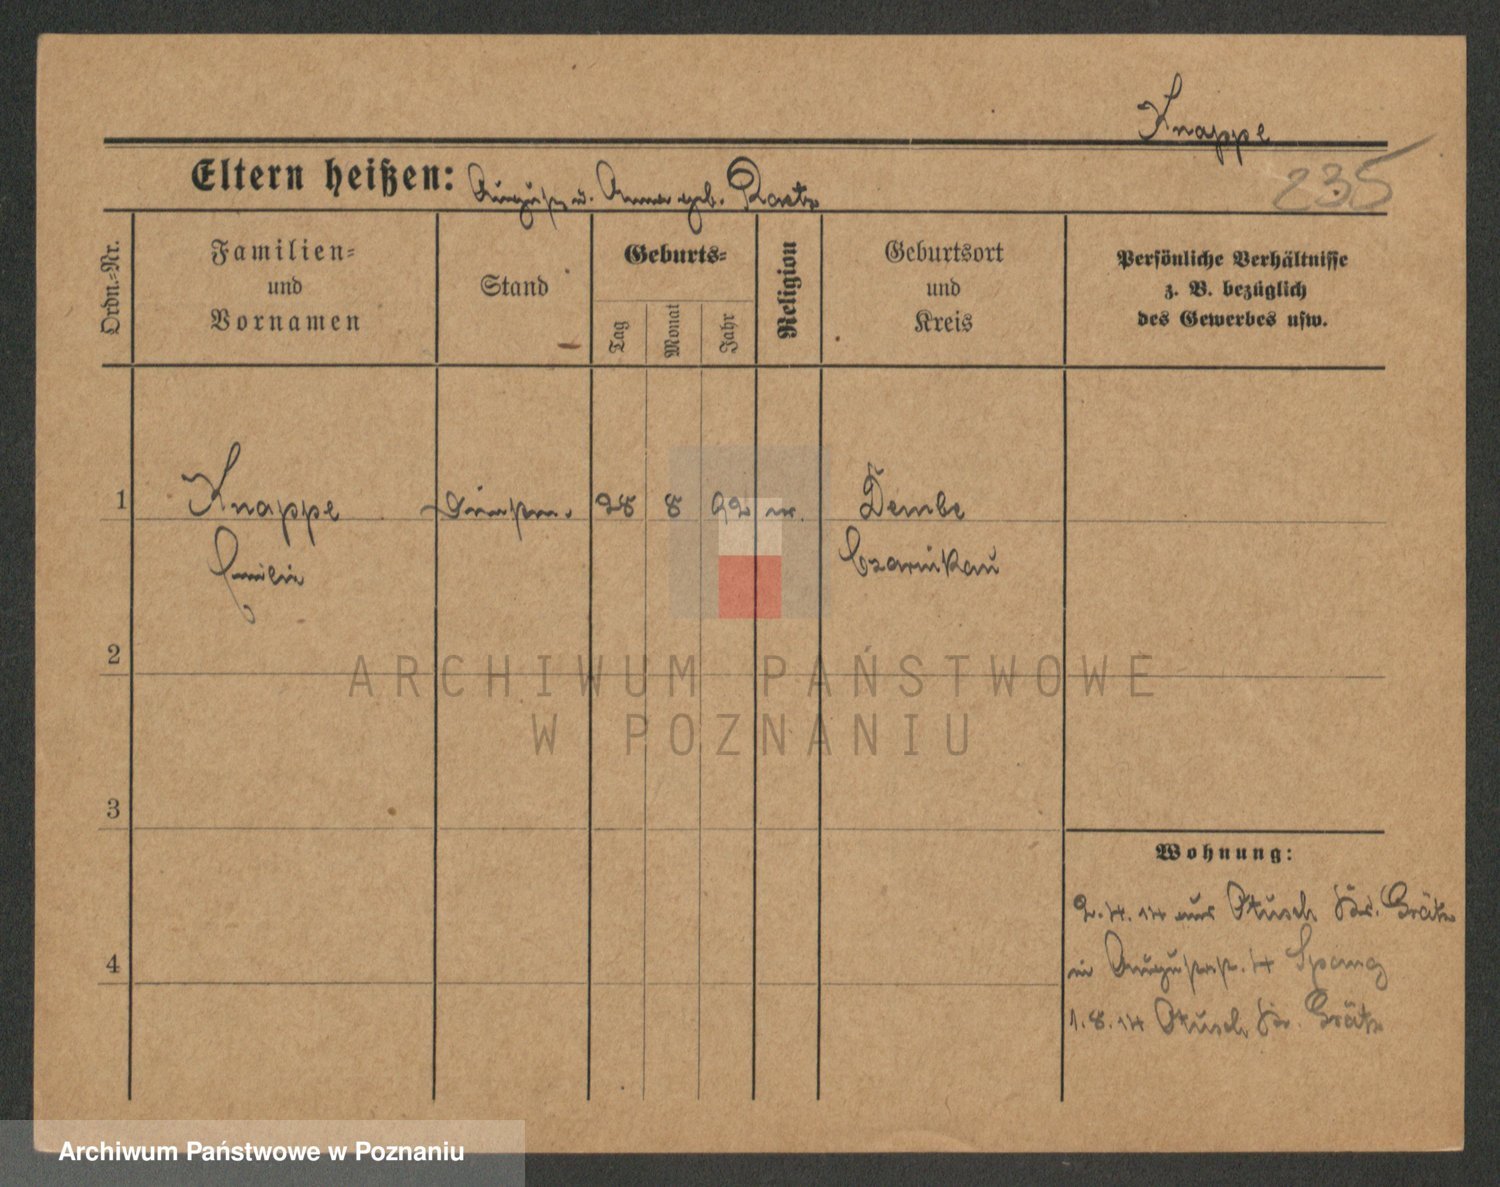 Knappe
235
Eltern heißen: August u. Anna geb.
Ordn.-Nr.
Familien-
und
Vornamen
Stand
Geburts-
Tag
Monat
Jahr
Religion
Geburtsort
und
Kreis
Persönliche Verhältnisse
z. B. bezüglich
des Gewerbes usw.
1 Knappe 28 8 92 Dembe
Emilie Czarnikau
2
3
4
Wohnung:
2.4.14 aus Ptusch Kr. Grätz
in Auguststr. 4 Spang
1.8.14 Ptusch Kr. Grätz
ARCHIWUM PAŃSTWOWE
W POZNANIU
Archiwum Państwowe w Poznaniu